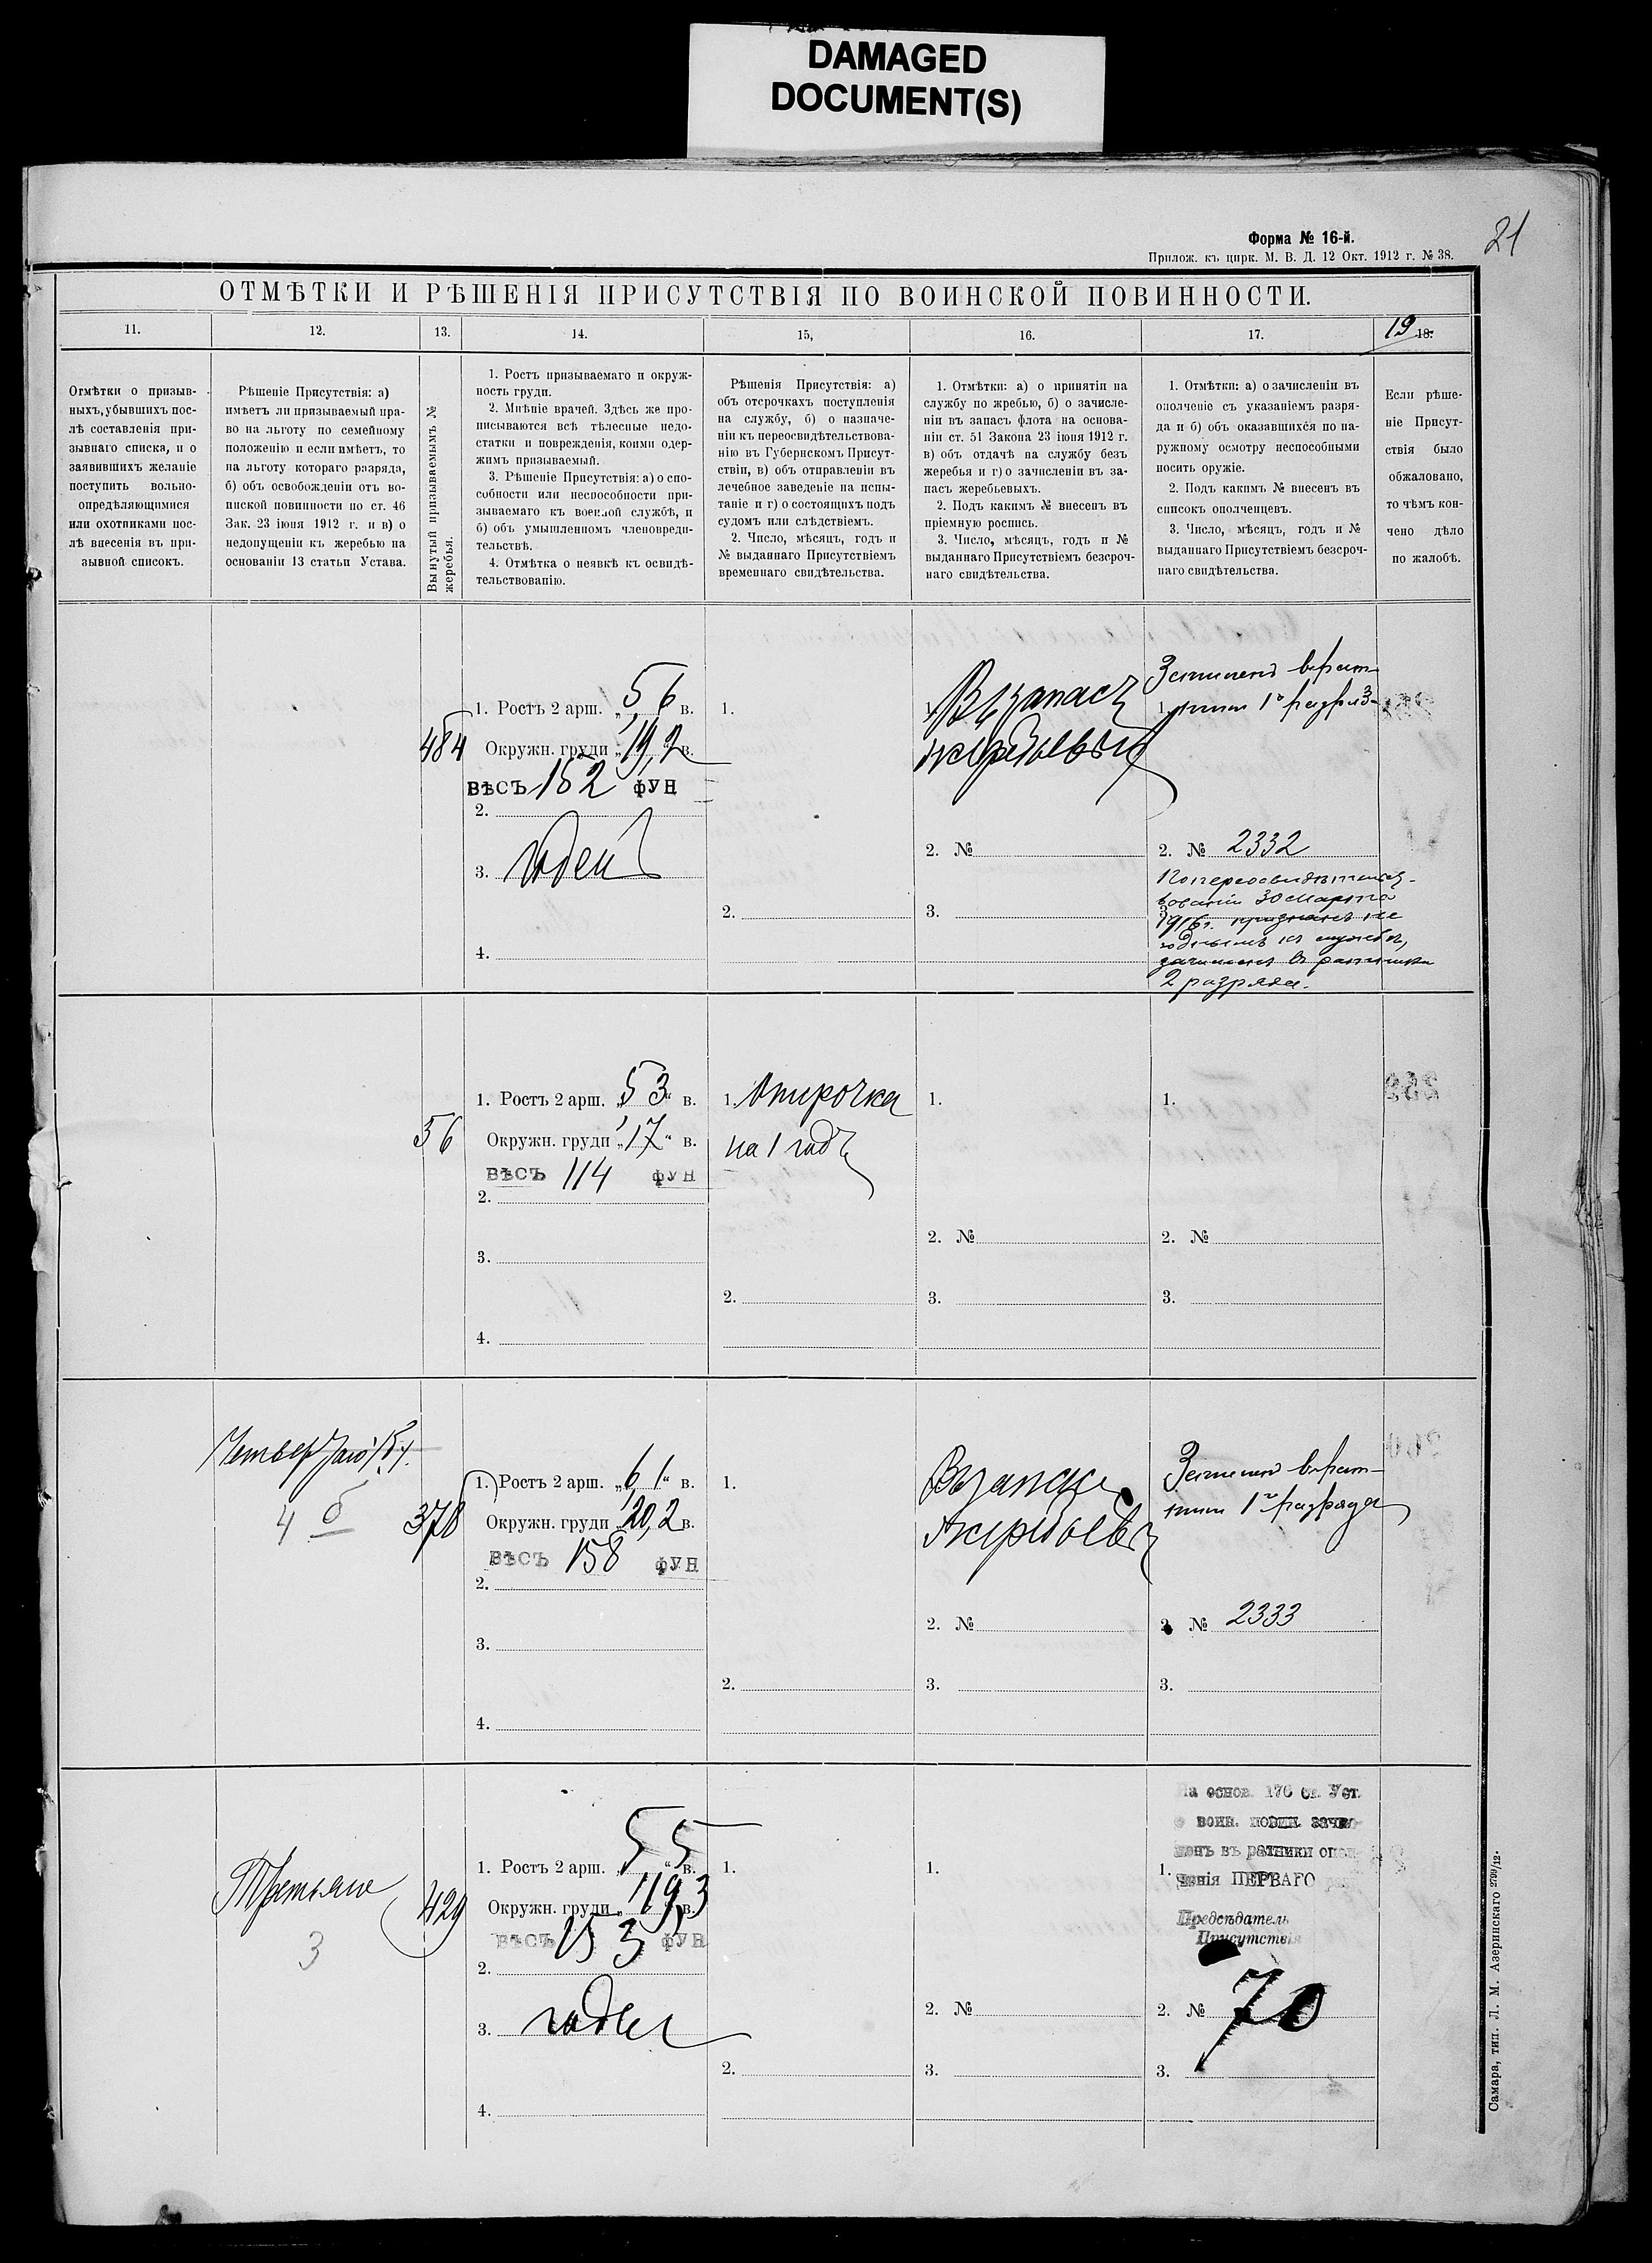 DAMAGED
DOCUMENT(S)
21
Форма № 16-й.
Прилож. къ цирк. М. В. Д. 12 Окт. 1912 г. № 38.
ОТМѢТКИ И РѢШЕНІЯ ПРИСУТСТВІЯ ПО ВОИНСКОЙ ПОВИННОСТИ.
11.
12.
13.
14.
15,
16.
17.
19 18.
Отмѣтки о призыв-
ныхъ, убывшихъ пос-
лѣ составленія при-
зывнаго списка, и о
заявившихъ желаніе
поступить вольно-
опредѣляющимися
или охотниками пос-
лѣ внесенія въ при-
зывной списокъ.
Рѣшеніе Присутствія: а)
имѣетъ ли призываемый пра-
во на льготу по семейному
положенію и если имѣетъ, то
на льготу котораго разряда,
б) объ освобожденіи отъ во-
инской повинности по ст. 46
Зак. 23 іюня 1912 г. и в) о
недопущеніи къ жеребью на
основаніи 13 статьи Устава.
Вынутый призываемымъ №
жеребья.
1. Ростъ призываемаго и окруж-
ность груди.
2. Мнѣніе врачей. Здѣсь же про-
писываются всѣ тѣлесные недо-
статки и поврежденія, коими одер-
жимъ призываемый.
3. Рѣшеніе Присутствія: а) о спо-
собности или неспособности при-
зываемаго къ военной службѣ, и
б) объ умышленномъ членовреди-
тельствѣ.
4. Отмѣтка о неявкѣ къ освидѣ-
тельствованію.
Рѣшенія Присутствія: а)
объ отсрочкахъ поступленія
на службу, б) о назначе-
ніи къ переосвидѣтельствова-
нію въ Губернскомъ Присут-
ствіи, в) объ отправленіи въ
лечебное заведеніе на испы-
таніе и г) о состоящихъ подъ
судомъ или слѣдствіемъ.
2. Число, мѣсяцъ, годъ и
№ выданнаго Присутствіемъ
временнаго свидѣтельства.
1. Отмѣтки: а) о принятіи на
службу по жребью, б) о зачисле-
ніи въ запасъ флота на основа-
ніи ст. 51 Закона 23 іюня 1912 г.
в) объ отдачѣ на службу безъ
жеребья и г) о зачисленіи въ за-
пасъ жеребьевыхъ.
2. Подъ какимъ № внесенъ въ
пріемную роспись.
3. Число, мѣсяцъ, годъ и №
выданнаго Присутствіемъ безсроч-
наго свидѣтельства.
1. Отмѣтки: а) о зачисленіи въ
ополченіе съ указаніемъ разря-
да и б) объ оказавшихся по на-
ружному осмотру неспособными
носить оружіе.
2. Подъ какимъ № внесенъ въ
списокъ ополченцевъ.
3. Число, мѣсяцъ, годъ и №
выданнаго Присутствіемъ безсроч-
наго свидѣтельства.
Если рѣше-
ніе Присут-
ствія было
обжаловано,
то чѣмъ кон-
чено дѣло
по жалобѣ.
484
1. Ростъ 2 арш. „5 6 в.
Окружн. груди „19,2 в.
ВѢСЪ 152 ФУН
2.
3. годенъ
4.
1.
2.
1. Въ запасъ
жеребьевыхъ
2. №
3.
Зачисленъ в рат-
1. ники 1го разряд
2. № 2332
По переосвидѣтельст-
вованіи 30 Марта
3. 1916г. признанъ не
годнымъ къ службѣ,
зачисленъ въ ратники
2 разряда.
56
1. Ростъ 2 арш. „5 3“ в.
Окружн. груди „17“ в.
ВѢСЪ 114 ФУН
2.
3.
4.
1. Отсрочка
на 1 годъ
2.
1.
2. №
3.
1.
2. №
3.
4 б
378
1. Ростъ 2 арш. „6 1“ в.
Окружн. груди „20,2 в.
ВѢСЪ 158 ФУН
2.
3.
4.
1.
2.
Въ запасъ
жеребьев
2. №
3.
Зачисленъ в рат-
ники 1го разряда
2. № 2333
3.
Третьяго
3
429
1. Ростъ 2 арш. „5 5“ в.
Окружн. груди „19 3 в.
ВѢСЪ 153 ФУН
2.
3. годенъ
4.
1.
2.
1.
2. №
3.
На основ. 176 ст. Уст.
о воин. повин. зачис-
ленъ въ ратники опол-
1. ченія ПЕРВАГО
Предсѣдатель
Присутствія
2. № 70
3.
Самара, тип. Л. М. Азеринскаго 2799/12.